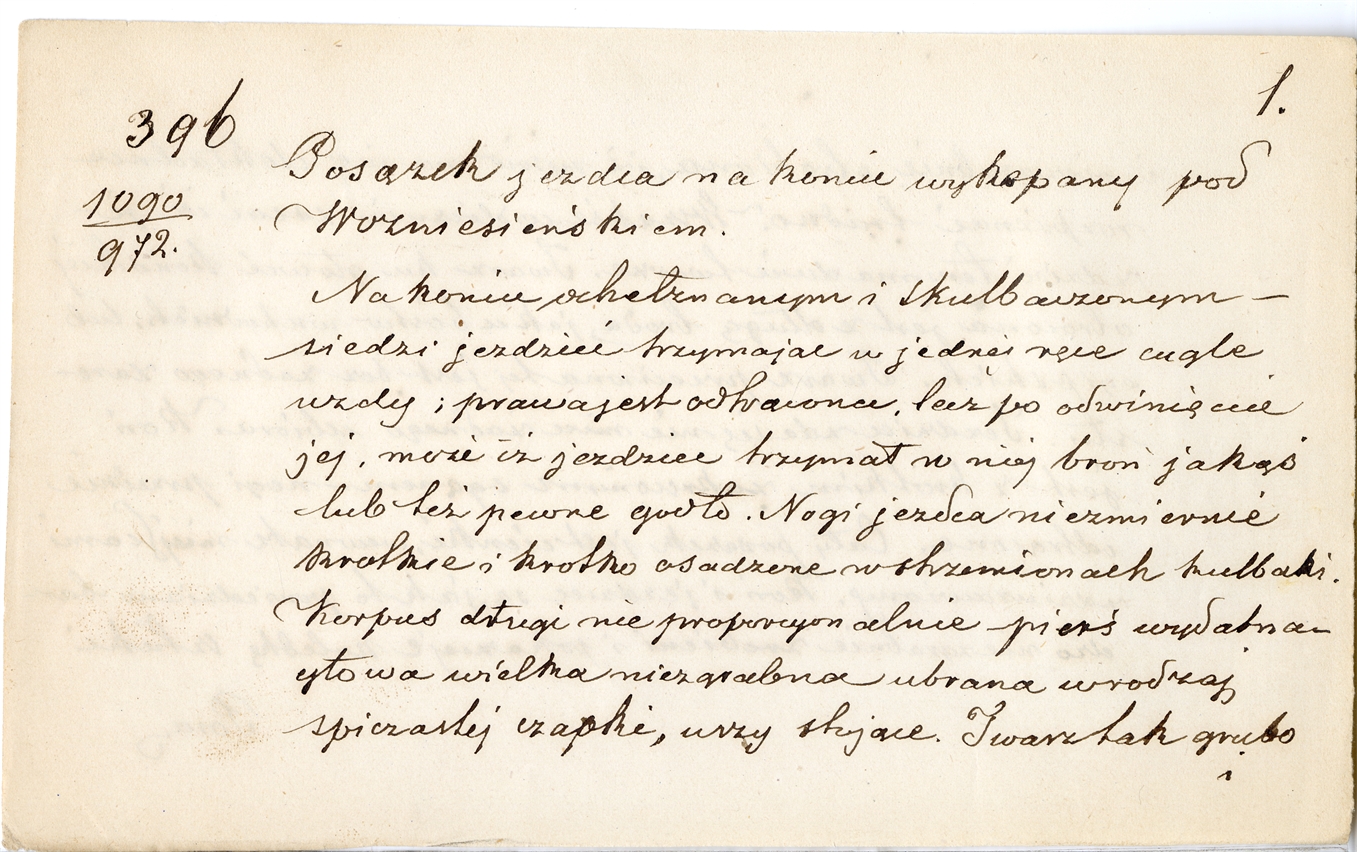 1.
396
1090
972.
Posążek jezdca na koniu wykopany pod
Wozniesieńskiem.
Na koniu okiełznanym i skulbaczonym —
siedzi jezdziec trzymając w jednéj ręce cugle
uzdy; prawa jest odtrącona, lecz po odwinięcie
jej, może iż jezdziec trzymał w niej broń jakąś
lub też pewne godło. Nogi jezdca niezmiernie
krotkie i krotko osadzone w strzemionach kulbaki.
Korpus długi nie proporcyonalnie pierś wydatna
głowa wielka niezgrabna ubrana w rodzaj
spiczastéj czapki, uszy stojące. Twarz tak grubo
i